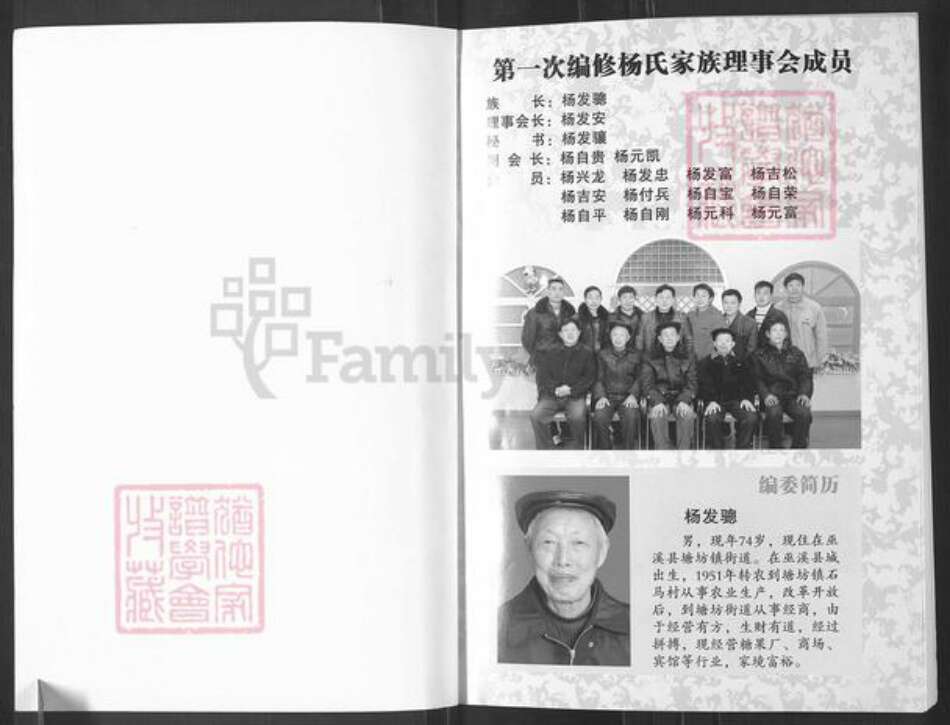 第一次编修杨氏家族理事会成员
族 长：杨发骢
理事会长：杨发安
秘 书：杨发骧
副 会 长：杨自贵 杨元凯
员：杨兴龙 杨发忠 杨发富 杨吉松
杨吉安 杨付兵 杨自宝 杨自荣
杨自平 杨自刚 杨元科 杨元富
Family
编委简历
杨发骢
男，现年74岁，现住在巫
溪县塘坊镇街道。在巫溪县城
出生，1951年转农到塘坊镇石
马村从事农业生产，改革开放
后，到塘坊街道从事经商，由
于经营有方，生财有道，经过
拼搏，现经营糖果厂、商场、
宾馆等行业，家境富裕。
譜學會
藏